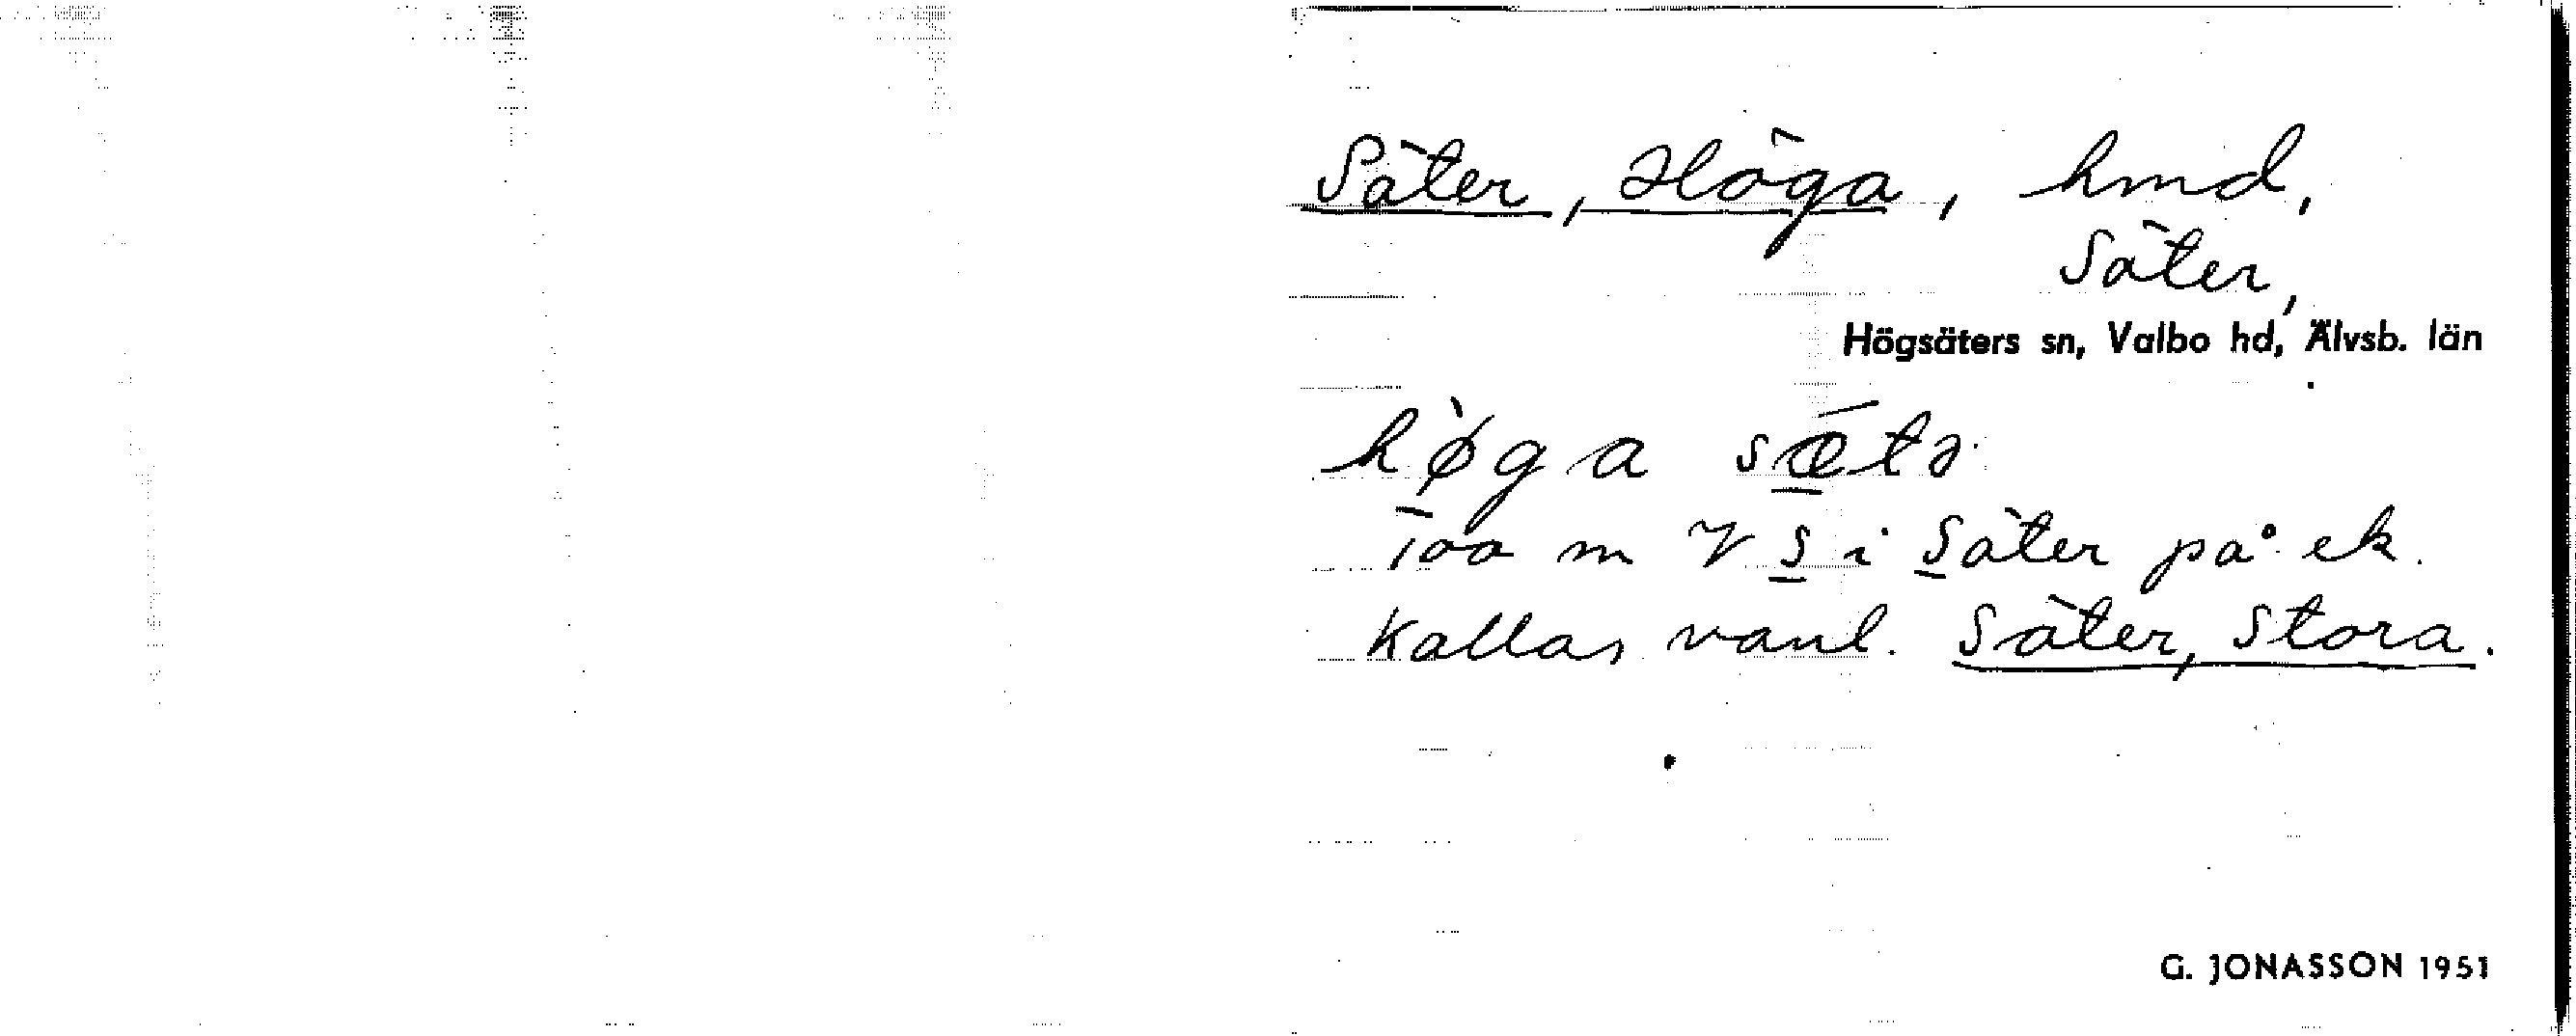 Säter, Höga, hmd,
Säter,
Högsäters sn, Valbo hd, Älvsb. län
hø̀ga sǽtə
100 m V S i Säter på ek.
Kallas vanl. Säter, Stora.
G. JONASSON 1951